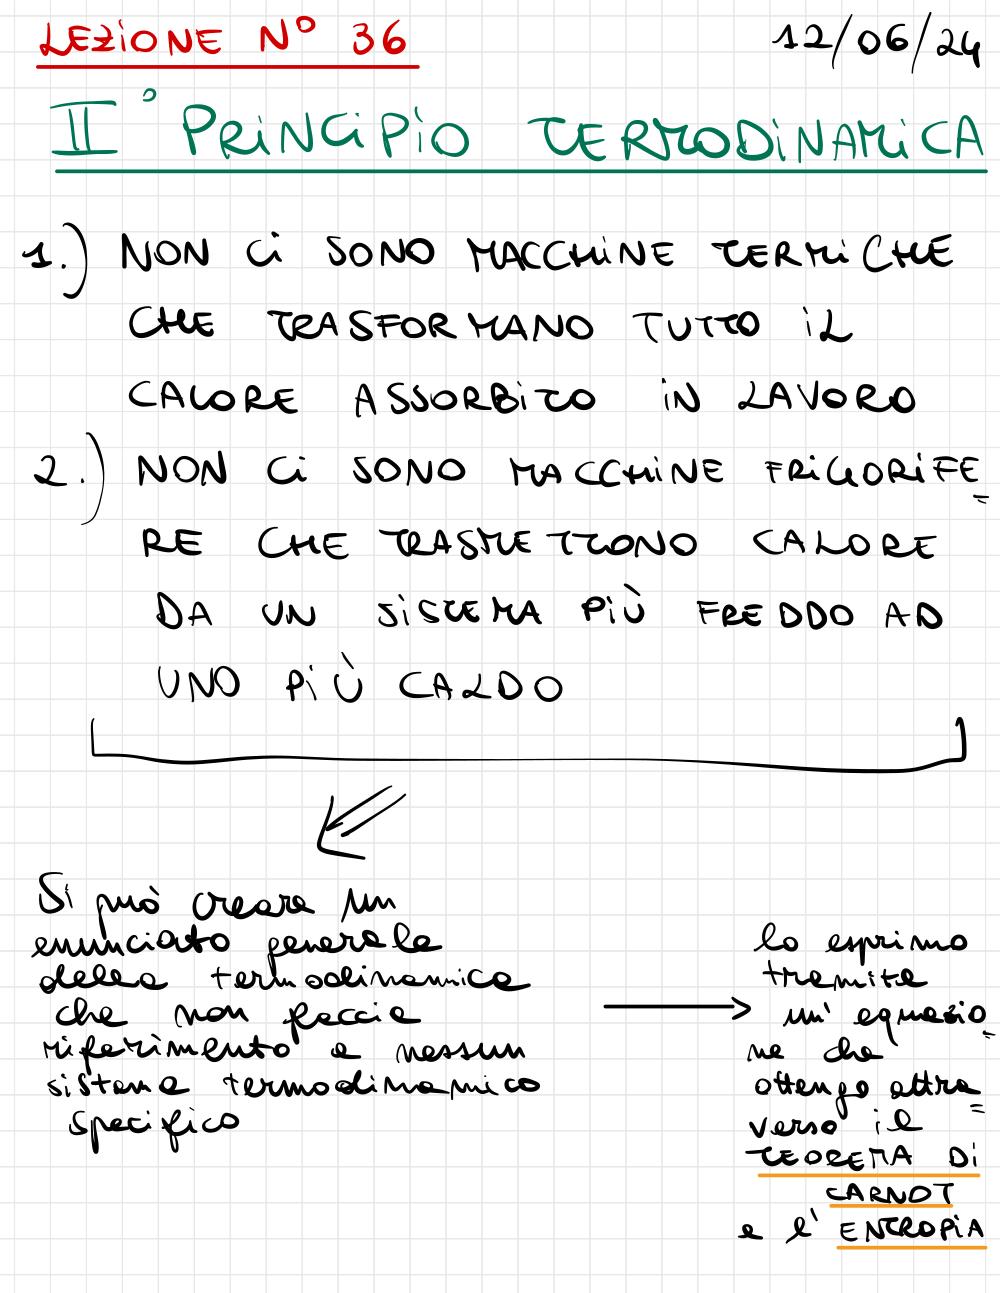 LEZIONE N° 36
12/06/24
II° PRINCIPIO TERMODINAMICA
1.) NON CI SONO MACCHINE TERMICHE
CHE TRASFORMANO TUTTO IL
CALORE ASSORBITO IN LAVORO
2.) NON CI SONO MACCHINE FRIGORIFE=
RE CHE TRASMETTONO CALORE
DA UN SISTEMA PIÙ FREDDO AD
UNO PIÙ CALDO
Si può creare un
enunciato generale
della termodinamica
che non faccia
riferimento a nessun
sistema termodinamico
specifico
lo esprimo
tramite
un'equazio=
ne che
ottengo attra=
verso il
TEOREMA DI
CARNOT
e l'ENTROPIA